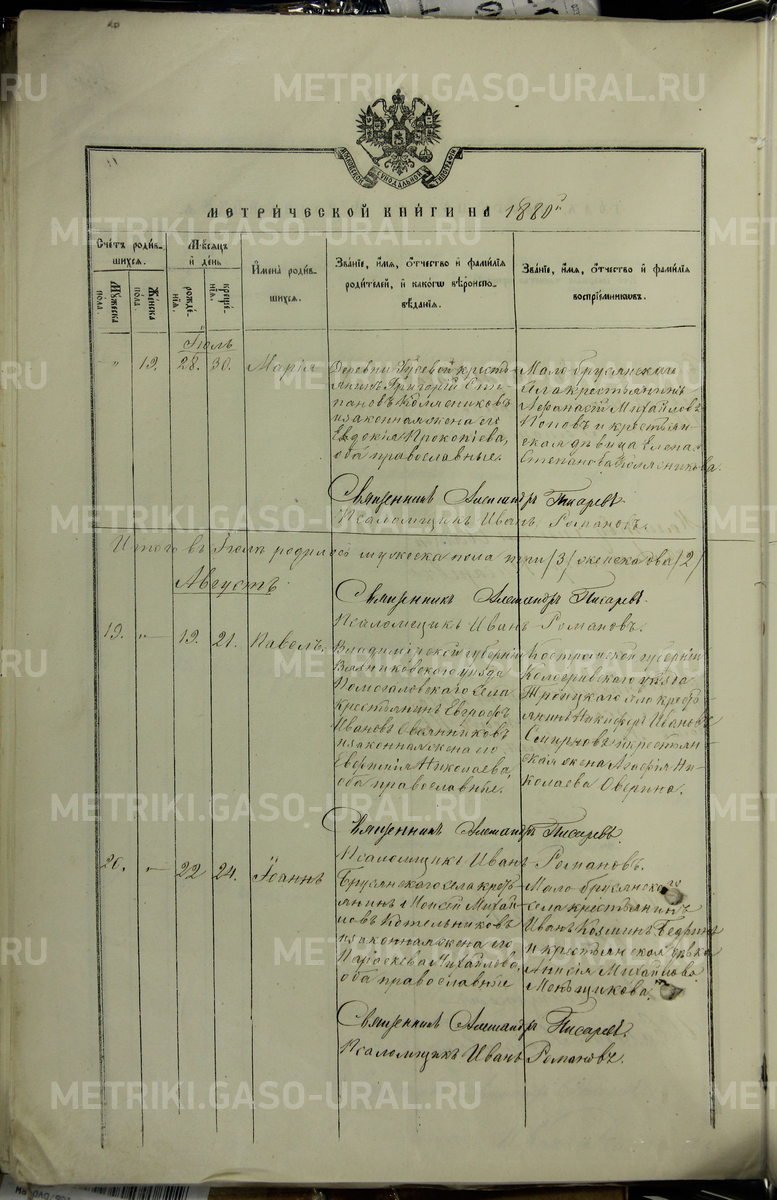 METRIKI.GASO-URAL.RU
МЕТРИЧЕСКОЙ КНИГИ НА 1880й
Счетъ родив-
шихся.
Мужеска пола.
Женска пола.
Мѣсяцъ и день
рожденія.
крещенія.
Имена родив-
шихся.
Званіе, имя, отчество и фамилія
родителей, и какогѡ вѣроиспо-
вѣданія.
Званіе, имя, отчество и фамилія
воспріемниковъ.
Іюль
" 19. 28. 30. Марія
Деревни Гусевой кресть-
янинъ Григорій Сте-
пановъ
и законная жена его
Евдокія Прокопіева,
оба православные.
Мало брусянскаго
села крестьянинъ
Афанасій Михайловъ
Поповъ и крестьян-
ская дѣвица Елена
Степанова
Священникъ Александръ Писаревъ.
Псаломщикъ Иванъ Романовъ.
Итого въ Іюлѣ родилось мужеска пола три /3/ женска два /2/
Августъ
Священникъ Александръ Писаревъ.
Псаломщикъ Иванъ Романовъ.
19. " 19. 21. Павелъ.
Владимірской губерніи
Вязниковскаго уѣзда
села
крестьянинъ Евграфъ
Ивановъ
и законная жена его
Евфимія Николаева,
оба православные.
Костромской губерніи
Кологривскаго уѣзда
Троицкаго села кресть-
янинъ Никифоръ Ивановъ
Смирновъ и крестьян-
ская жена Агафія Ни-
колаева Оверина.
Священникъ Александръ Писаревъ.
Псаломщикъ Иванъ Романовъ.
20. " 22 24. Іоаннъ
Брусянскаго села кресть-
янинъ Моисей Михай-
ловъ Котельниковъ
и законная жена его
Параскева Михайлова,
оба православные
Мало брусянскаго
села крестьянинъ
Иванъ Козминъ
и крестьянская дѣвка
Анисія Михайлова
Меньщикова.
Священникъ Александръ Писаревъ.
Псаломщикъ Иванъ Романовъ.